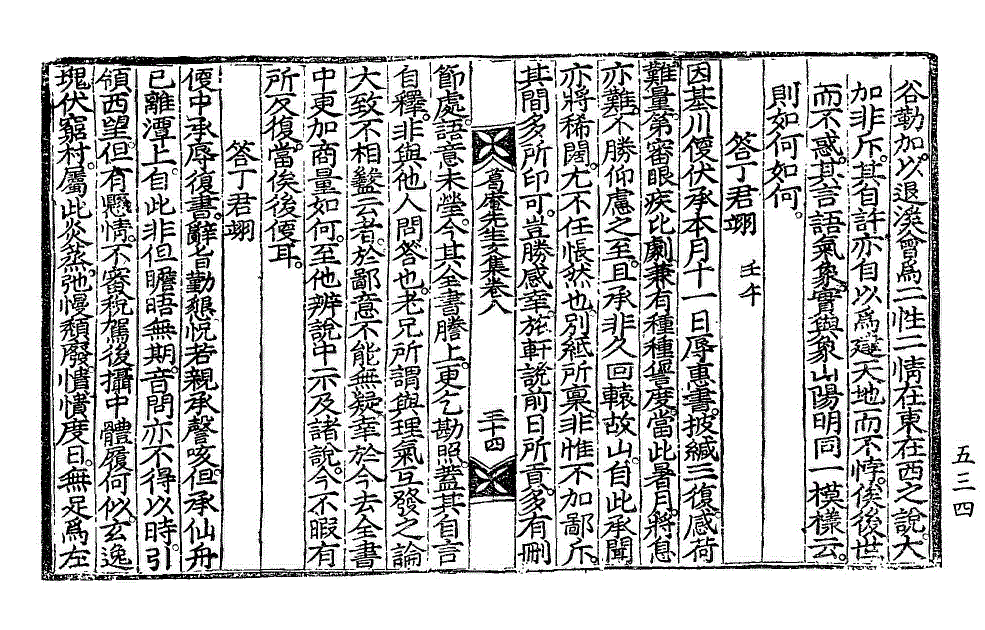 谷勤加。以退溪曾爲二性二情在東在西之說。大
加非斥。其自許亦自以爲建天地而不悖。俟後世
而不惑。其言語氣象。實與象山陽明同一模樣云。
則如何如何。
答丁君翊 壬午
因基川便伏承本月十一日辱惠書。披緘三復。感荷
難量。第審眼疾比劇。兼有種種愆度。當此暑月。將息
亦難。不勝仰慮之至。且承非久回轅故山。自此承聞
亦將稀闊。尤不任悵然也。別紙所禀。非惟不加鄙斥。
其間多所印可。豈勝感幸。旅軒說前日所貢。多有刪
葛庵先生文集卷八 三十四
節處。語意未瑩。今其全書謄上。更乞勘照。蓋其自言
自釋。非與他人問答也。老兄所謂與理氣互發之論
大致不相盭云者。於鄙意不能無疑。幸於今去全書
中更加商量如何。至他辨說中示及諸說。今不暇有
所反復。當俟後便耳。
答丁君翊
便中承辱復書。辭旨勤懇。怳若親承謦咳。但承仙舟
已離潭上。自此非但瞻晤無期。音問亦不得以時。引
領西望。但有懸情。不審稅駕後。攝中體履何似。玄逸
塊伏窮村。屬此炎蒸。弛慢頹廢。憒憒度日。無足爲左
五三四